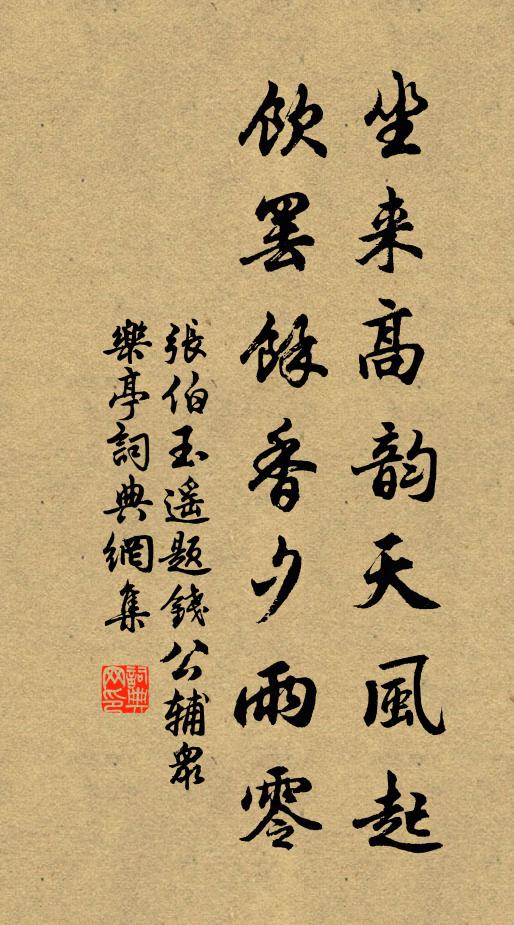 坐来高韵天風起
飲罢餘香夕雨零
張伯玉遥題錢公輔眾
樂亭詞典網集
詞典
网印